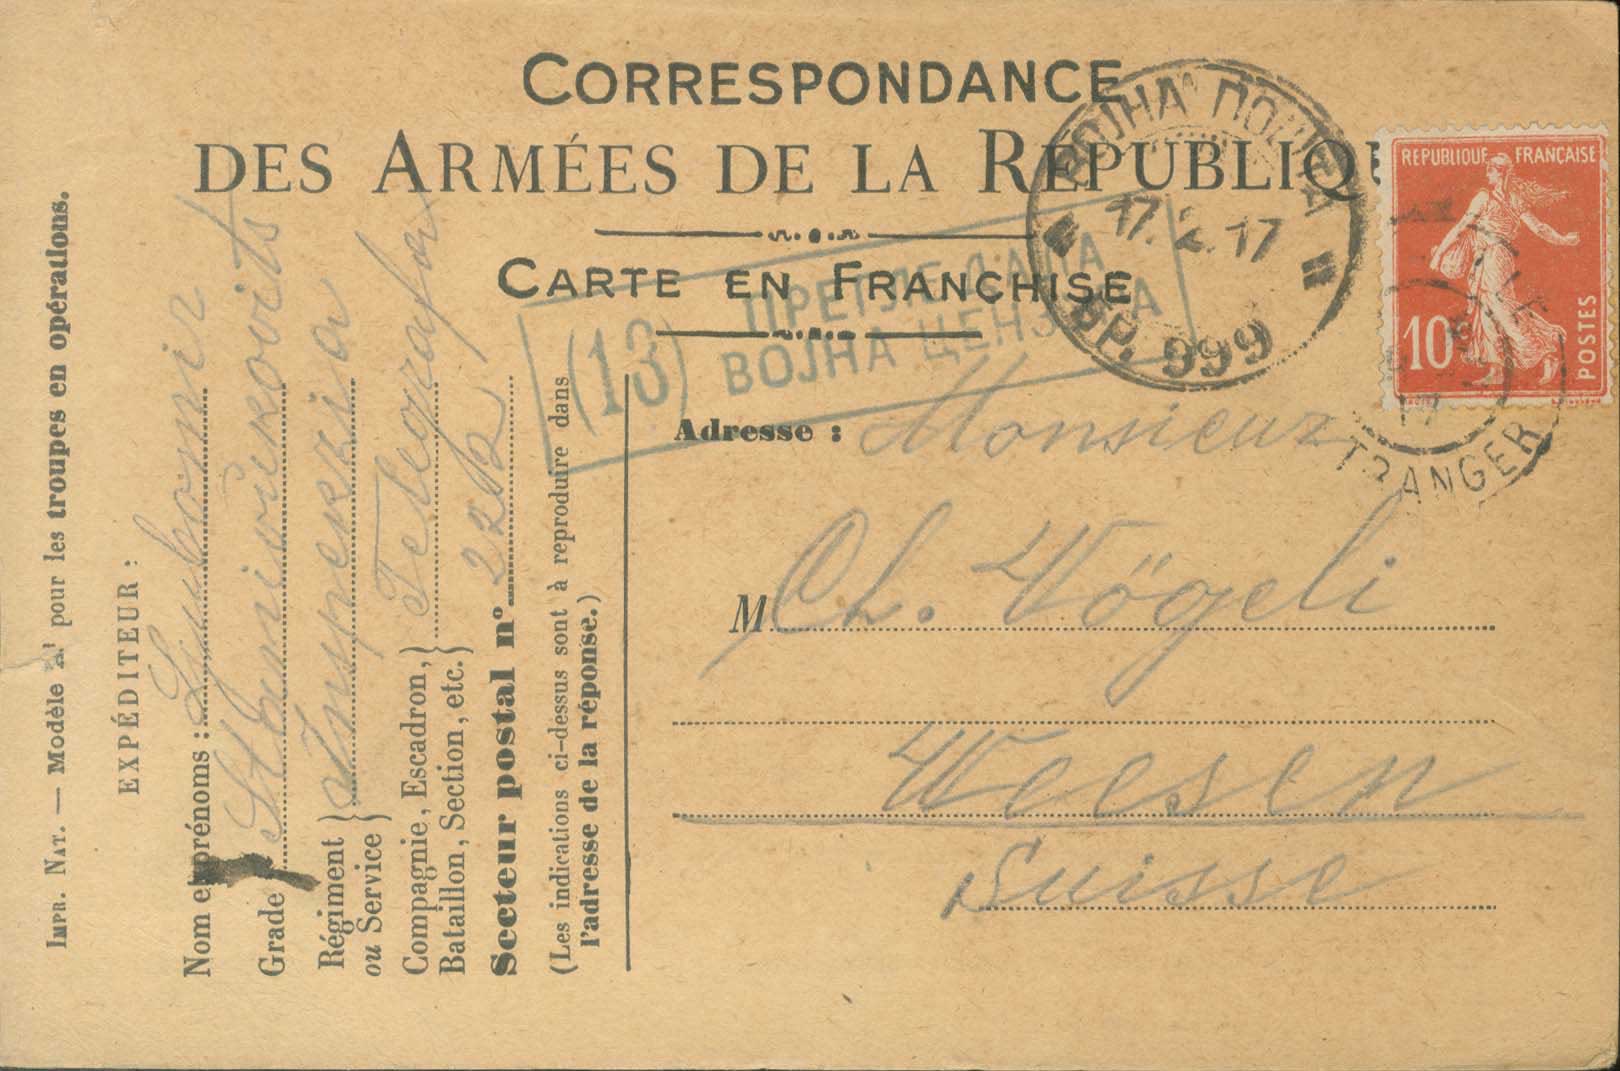 CORRESPONDANCE
DES ARMÉES DE LA RÉPUBLIQ
CARTE EN FRANCHISE
ВОЈНА ПОШТА
17.2.17
БР. 999
REPUBLIQUE FRANÇAISE
10c
POSTES
TRANGER
(13) ПРЕГЛЕДАЛА
ВОЈНА ЦЕНЗУРА
Adresse : Monsieur
M Ch. Vögeli
Weesen
Suisse
IMPR. NAT. — Modèle A¹ pour les troupes en opérations.
EXPÉDITEUR :
Nom et prénoms : Ljubomir
Grade Stanioukovits
Régiment ou Service } Inspekzia
Compagnie, Escadron, Bataillon, Section, etc. } Telegrafa
Secteur postal n° 2212
(Les indications ci-dessus sont à reproduire dans
l'adresse de la réponse.)